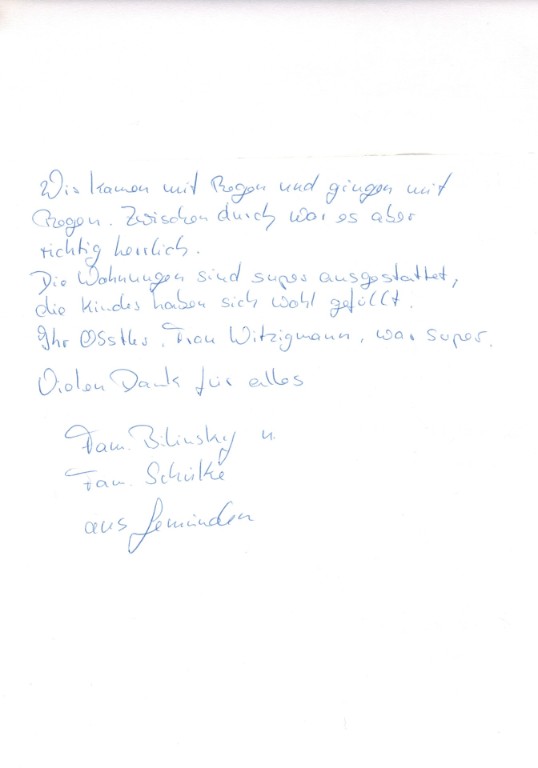 Wir kamen mit Regen und gingen mit
Regen. Zwischendurch war es aber
richtig herrlich.
Die Wohnungen sind super ausgestattet,
die Kinder haben sich wohl gefühlt.
Ihr Frau Witzigmann, war super.
Vielen Dank für alles
Fam. Bilinsky u.
Fam. Schülke
aus Gemünden